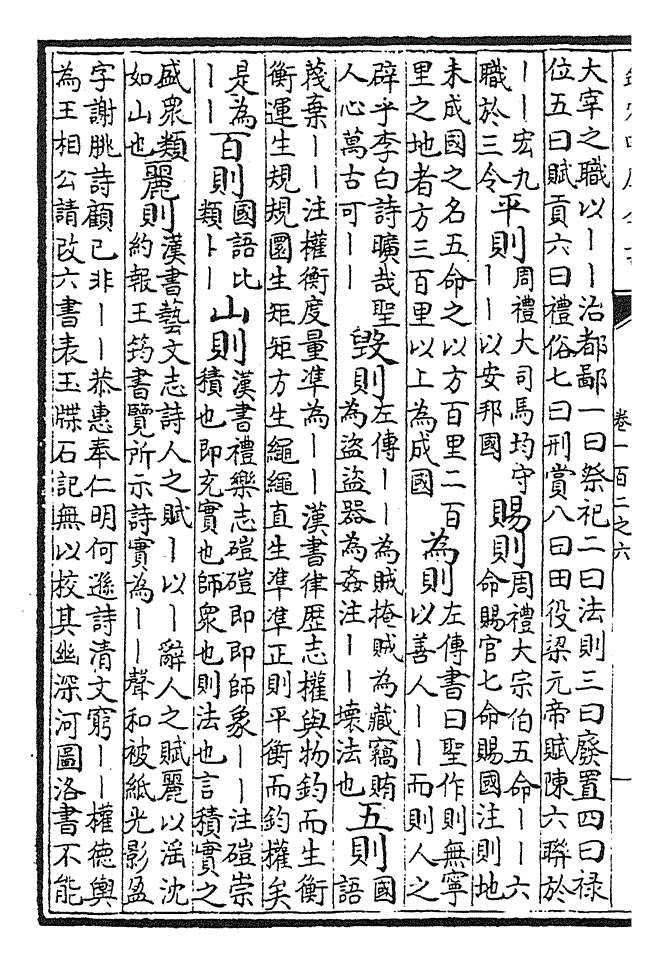 卷一百二之六
一
大宰之職以丨丨治都鄙一曰祭祀二曰法則三曰廢置四曰禄
位五曰賦貢六曰禮俗七曰刑賞八曰田役梁元帝賦陳六聯於
丨丨宏九
職於三令
平則
周禮大司馬均守
丨丨以安邦國
賜則
周禮大宗伯五命丨丨六
命賜官七命賜國注則地
未成國之名五命之以方百里二百
里之地者方三百里以上為成國
為則
左傳書曰聖作則無寧
以善人丨丨而則人之
辟乎李白詩曠哉聖
人心萬古可丨丨
毀則
左傳丨丨為賊掩賊為藏竊賄
為盗盗器為姦注丨丨壞法也
五則
國
語
蔑棄丨丨注權衡度量凖為丨丨漢書律歷志權與物鈞而生衡
衡運生規規圓生矩矩方生繩繩直生凖凖正則平衡而鈞權矣
是為
丨丨
百則
國語比
類卜丨
山則
漢書禮樂志磑磑即即師象丨丨注磑崇
積也即充實也師衆也則法也言積實之
盛衆類
如山也
麗則
漢書藝文志詩人之賦丨以丨辭人之賦麗以滛沈
約報王筠書覽所示詩實為丨丨聲和被紙光影盈
字謝朓詩顧己非丨丨恭惠奉仁明何遜詩清文窮丨丨權德輿
為王相公請改六書表玉牒石記無以校其幽深河圖洛書不能